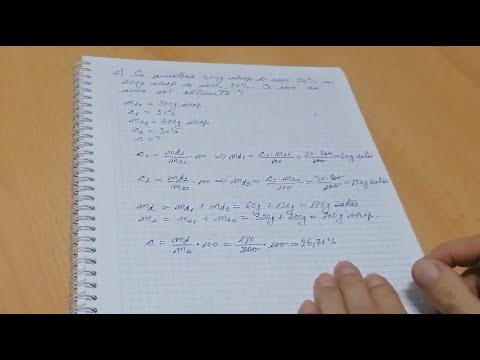 4) Se amestecă 300g sirop de conc. 20% cu
400g sirop de conc. 30%. Ce conc. are
noua sol. obținută?
ms₁ = 300g sirop
c₁ = 20%
ms₂ = 400g sirop
c₂ = 30%
c = ?
c₁ = md₁/ms₁ · 100 ⇒ md₁ = c₁·ms₁/100 = 20·300/100 = 60g zahăr
c₂ = md₂/ms₂ · 100 ⇒ md₂ = c₂·ms₂/100 = 30·400/100 = 120g zahăr
md = md₁ + md₂ = 60g + 120g = 180g zahăr
ms = ms₁ + ms₂ = 300g + 400g = 700g sirop.
c = md/ms · 100 = 180/700 · 100 = 25,71%